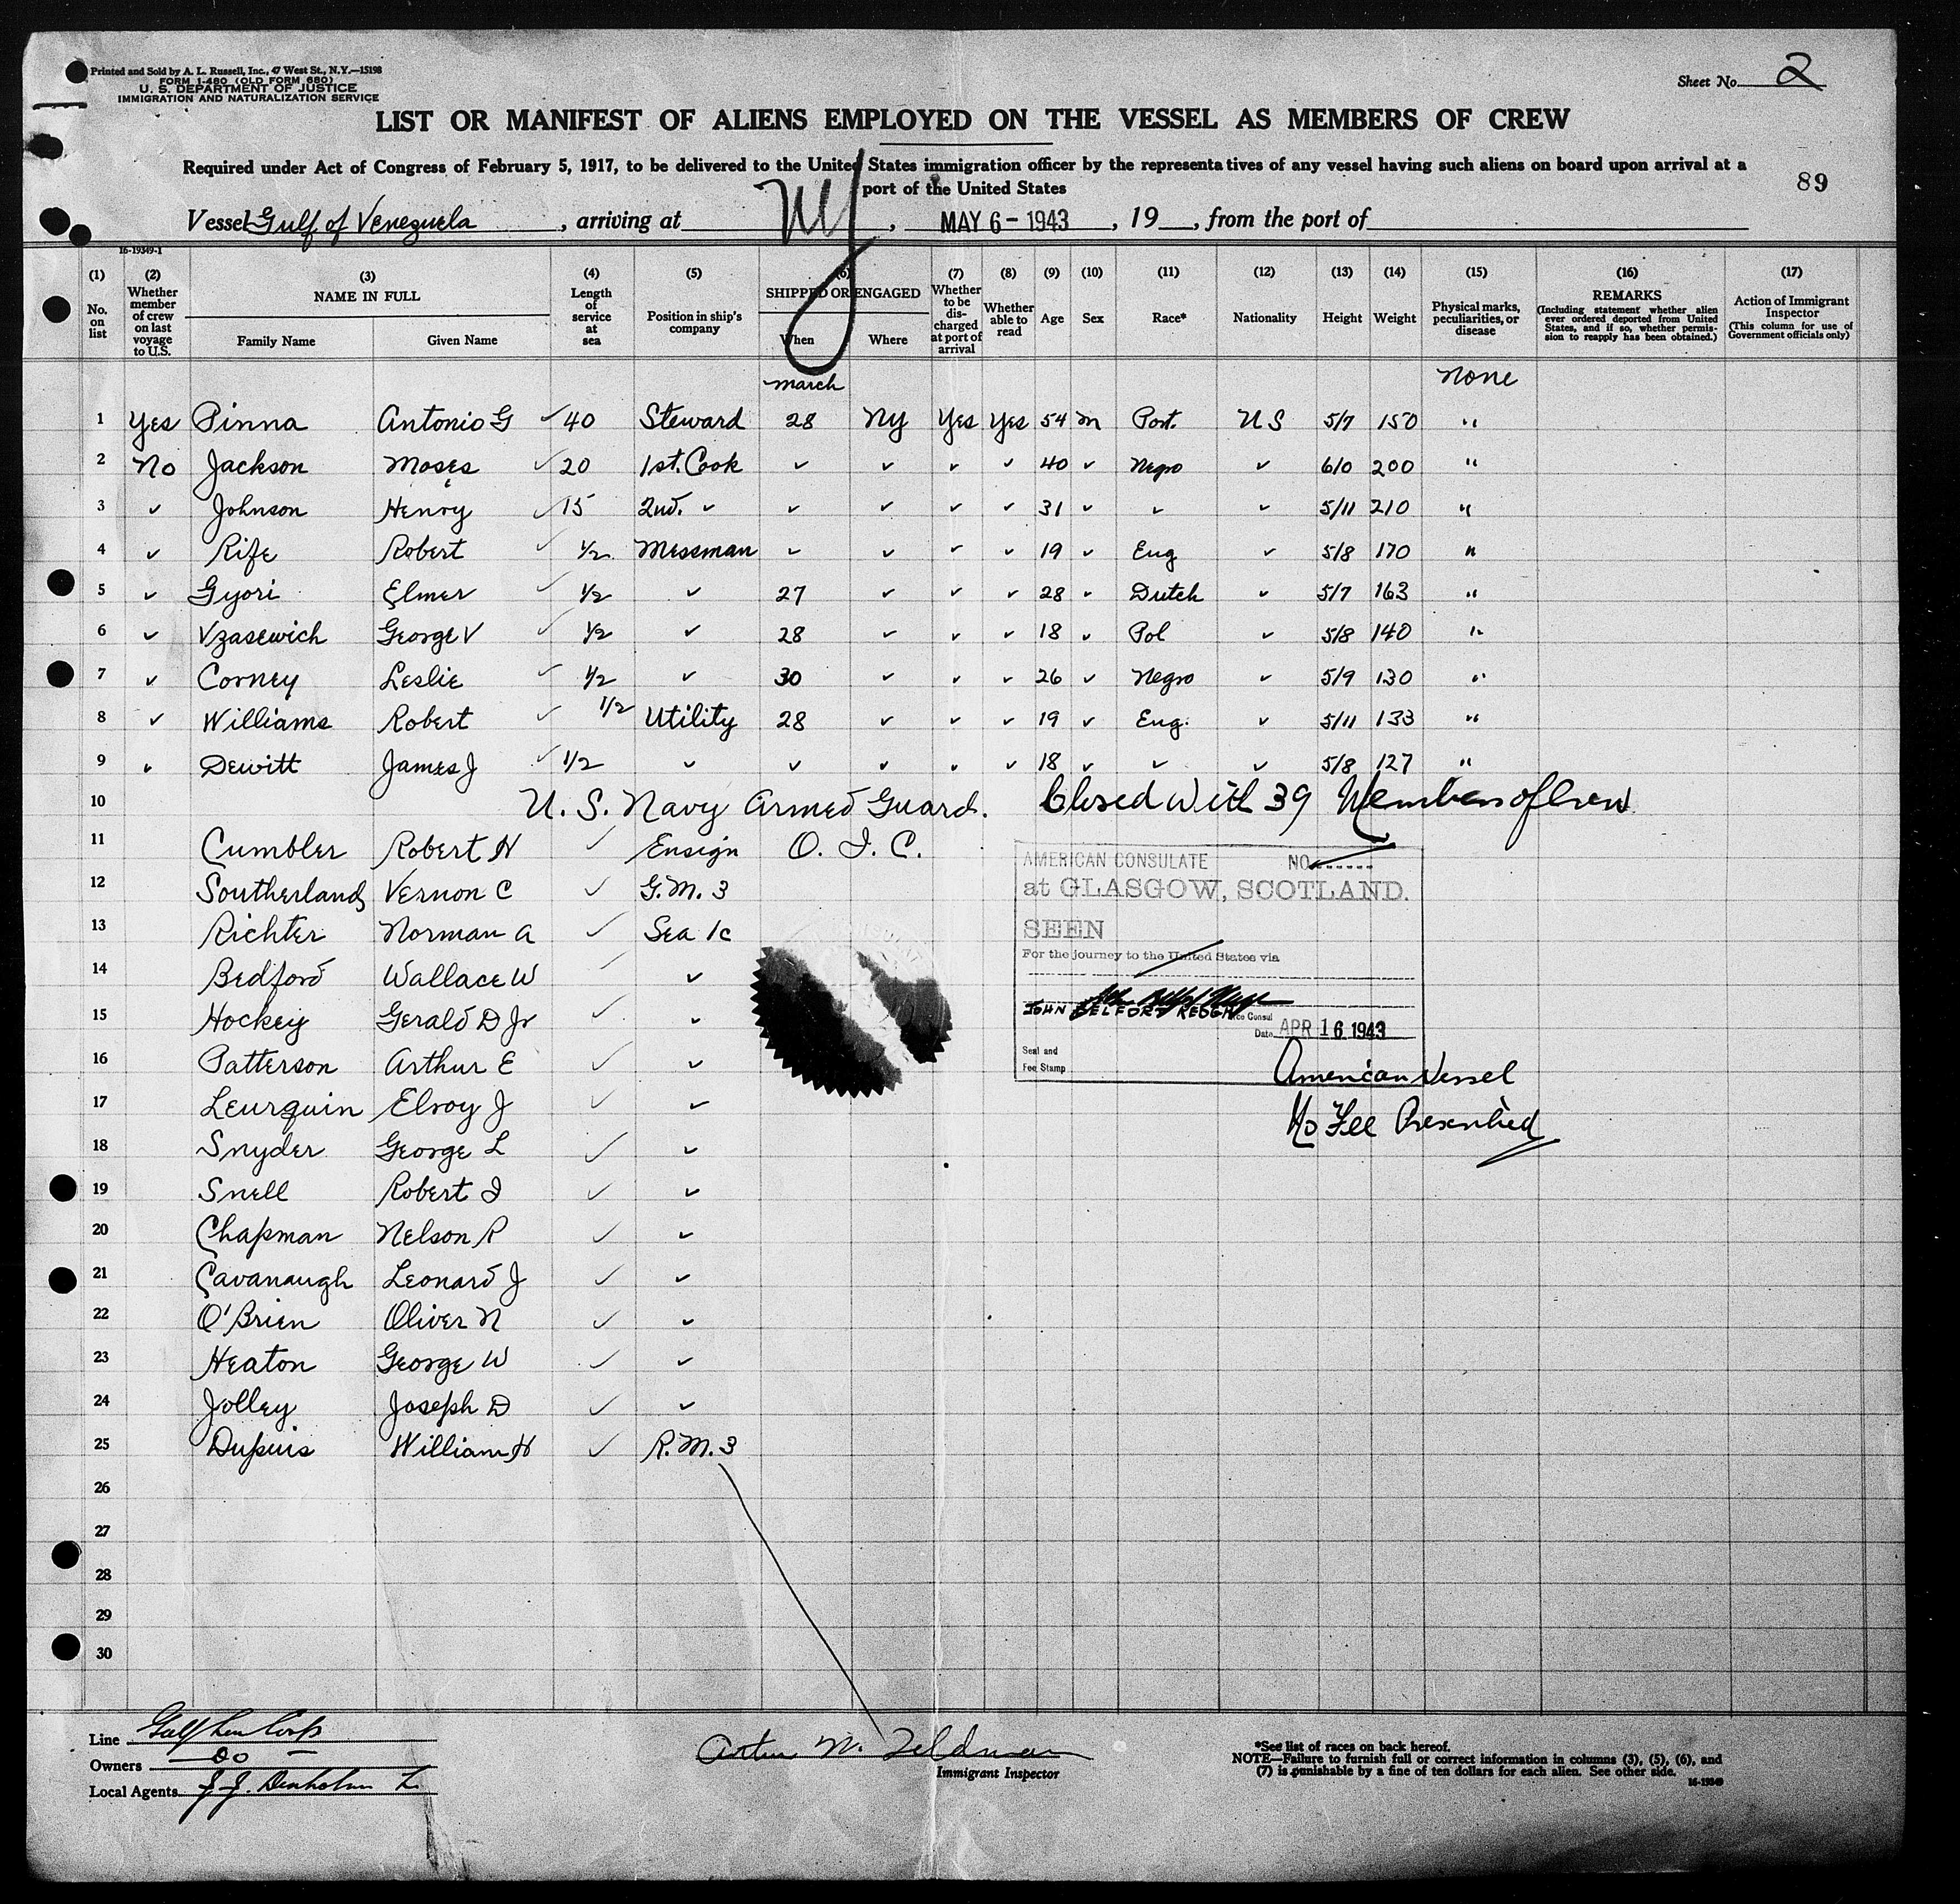 Printed and Sold by A. L. Russell, Inc., 47 West St., N.Y.—15198
FORM I-480 (OLD FORM 680)
U. S. DEPARTMENT OF JUSTICE
IMMIGRATION AND NATURALIZATION SERVICE
Sheet No. 2
LIST OR MANIFEST OF ALIENS EMPLOYED ON THE VESSEL AS MEMBERS OF CREW
Required under Act of Congress of February 5, 1917, to be delivered to the United States immigration officer by the representatives of any vessel having such aliens on board upon arrival at a
port of the United States
89
Vessel Gulf of Venezuela, arriving at NY, MAY 6 - 1943, 19__, from the port of
16-19349-1
(1) No. on list
(2) Whether member of crew on last voyage to U.S.
(3) NAME IN FULL
Family Name Given Name
(4) Length of service at sea
(5) Position in ship's company
(6) SHIPPED OR ENGAGED
When Where
(7) Whether to be discharged at port of arrival
(8) Whether able to read
(9) Age
(10) Sex
(11) Race*
(12) Nationality
(13) Height
(14) Weight
(15) Physical marks, peculiarities, or disease
(16) REMARKS (Including statement whether alien ever ordered deported from United States, and if so, whether permission to reapply has been obtained.)
(17) Action of Immigrant Inspector (This column for use of Government officials only)
March None
1 Yes Pinna Antonio G ✓ 40 Steward 28 NY Yes Yes 54 M Port. US 5/7 150 "
2 No Jackson Moses ✓ 20 1st. Cook ✓ ✓ ✓ ✓ 40 ✓ Negro ✓ 6/0 200 "
3 ✓ Johnson Henry ✓ 15 2nd. ✓ ✓ ✓ ✓ ✓ 31 ✓ ✓ ✓ 5/11 210 "
4 ✓ Rife Robert ✓ 1/2 Messman ✓ ✓ ✓ ✓ 19 ✓ Eng ✓ 5/8 170 "
5 ✓ Gyori Elmer ✓ 1/2 ✓ 27 ✓ ✓ ✓ 28 ✓ Dutch ✓ 5/7 163 "
6 ✓ Vzasewich George V ✓ 1/2 ✓ 28 ✓ ✓ ✓ 18 ✓ Pol ✓ 5/8 140 "
7 ✓ Corney Leslie ✓ 1/2 ✓ 30 ✓ ✓ ✓ 26 ✓ Negro ✓ 5/9 130 "
8 ✓ Williams Robert ✓ 1/2 Utility 28 ✓ ✓ ✓ 19 ✓ Eng. ✓ 5/11 133 "
9 ✓ Dewitt James J ✓ 1/2 ✓ ✓ ✓ ✓ ✓ 18 ✓ ✓ ✓ 5/8 127 "
10 U. S. Navy Armed Guard. Closed With 39 Members of Crew
11 Cumbler Robert H ✓ Ensign O. I. C.
12 Southerland Vernon C ✓ G.M. 3
13 Richter Norman A ✓ Sea 1c
14 Bedford Wallace W ✓ ✓
15 Hockey Gerald D Jr ✓ ✓
16 Patterson Arthur E ✓ ✓
17 Leurquin Elroy J ✓ ✓
18 Snyder George L ✓ ✓
19 Snell Robert I ✓ ✓
20 Chapman Nelson R ✓ ✓
21 Cavanaugh Leonard J ✓ ✓
22 O'Brien Oliver N ✓ ✓
23 Heaton George W ✓ ✓
24 Jolley Joseph D ✓ ✓
25 Dupuis William H ✓ R.M. 3
26
27
28
29
30
AMERICAN CONSULATE NO
at GLASGOW, SCOTLAND.
SEEN
For the journey to the United States via
JOHN BELFORT KEOGH
Vice Consul
Date APR 16 1943
Seal and
Fee Stamp
American Vessel
No Fee Prescribed
Line Gulf
Owners do
Local Agents J. J. Denholm
Feldman
Immigrant Inspector
*See list of races on back hereof.
NOTE—Failure to furnish full or correct information in columns (3), (5), (6), and
(7) is punishable by a fine of ten dollars for each alien. See other side.
16-19349